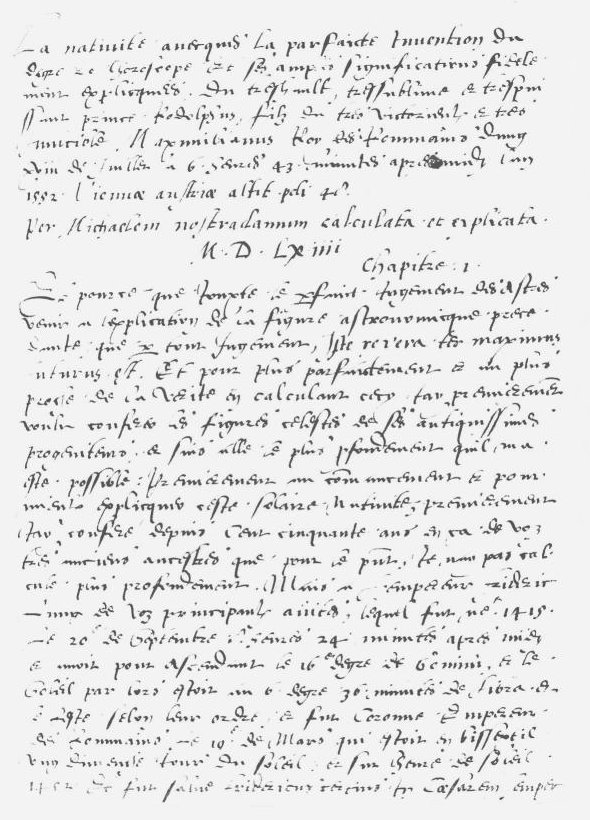 La nativite avecques la parfaicte Invention du
degre de l'horoscope et ses amples significations fidele
ment explicquees. Du treshault, tressublime et trespui
ssant prince Rodolphus, filz du tres victorieulx et tres
Maximilianus Roy des Rommains d'ung
xviii de Juillet a 6 heures 43 minutes apres midy l'an
1552. Viennæ austriæ altit. poli 48.
Per Michaelem nostradamum calculata et explicata.
M. D. LXiiii
Chapitre. 1.
pource que Jouxte le parfaict Jugement des Astres
venir a l'explication de la figure astronomicque prece
dante que par tout Jugement, Iste revera maximus
futurus est. Et pour plus parfaictement et au plus
proche de la verite en calculant cecy, J'ay premierement
voulu conferer les figures celestes de ses antiquissimes
progeniteurs, et suis alle le plus profondement qu'il m'a
este possible: Premierement au commencement et pour
mieulx explicquer ceste solaire Nativite, premierement
J'ay confere depuis cent cinquante ans en ca de voz
tres anciens ancestres que pour le present, Je n'ay pas cal
cule plus profondement. Mais a l'empereur Frideric
l'ung de voz principaulx aultes, lequel fut né 1415.
Le 20 de Septembre heures 24 minutes apres midy
et avoit pour Ascendant le 16 degre de Gemini, et le
Soleil par lors estoit au 6 degre 36 minutes de Libra et
le reste selon leur ordre, et fut Coronne Empereur
des Rommains. Le 19 de Mars qui estoit en bissextil
du soleil et sur l'heure de soleil
1452. Et fut Fridericus tercius Cæsarem emper